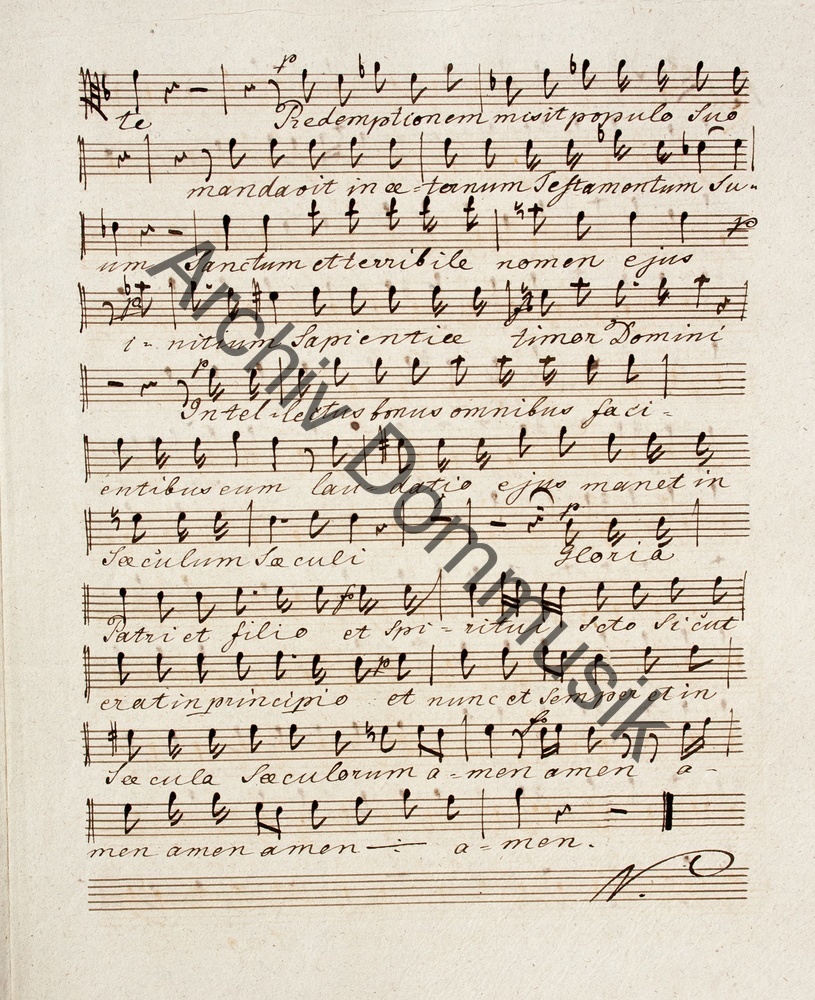 p
te Redemptionem misit populo Suo
mandavit in æ-ternum Testamentum Su-
um Sanctum et terribile nomen ejus p
i- nitium Sapientiæ timor Domini
p
Intel-lectus bonus omnibus faci-
entibus eum lau-datio ejus manet in
Sæculum Sæculi Gloria
Patri et filio et Spi-ritui Scto Sicut
erat in principio et nunc et Semper et in
Sæcula Sæculorum a-men amen a-
men amen amen —·— a-men.
Archiv Dommusik